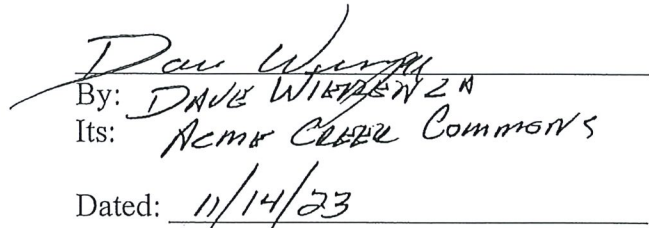 Dave
By: DAVE WIERENZA
Its: ACME CREEK COMMONS
Dated: 11/14/23